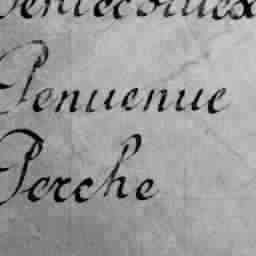 Penuenue
Perche